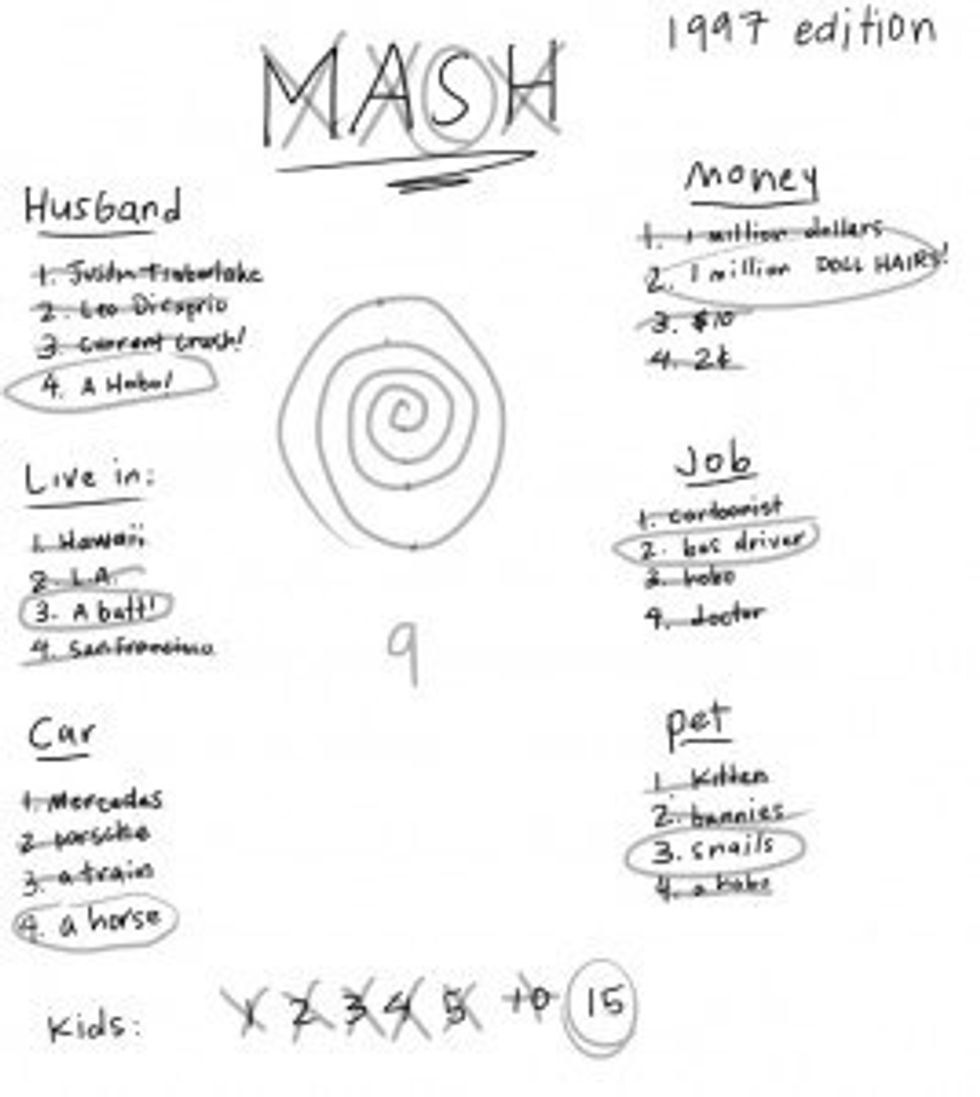 1997 edition
MASH
Husband
1. Justin Timberlake
2. Leo Dicaprio
3. current crush!
4. A Hobo!
Live in:
1. Hawaii
2. L.A.
3. A butt!
4. San Francisco
Car
1. Mercedes
2. porsche
3. a train
4. a horse
Money
1. 1 million dollars
2. 1 million DOLL HAIRS!
3. $10
4. 2¢
Job
1. cartoonist
2. bus driver
3. hobo
4. doctor
pet
1. kitten
2. bunnies
3. snails
4. a hobo
9
Kids: 1 2 3 4 5 10 15